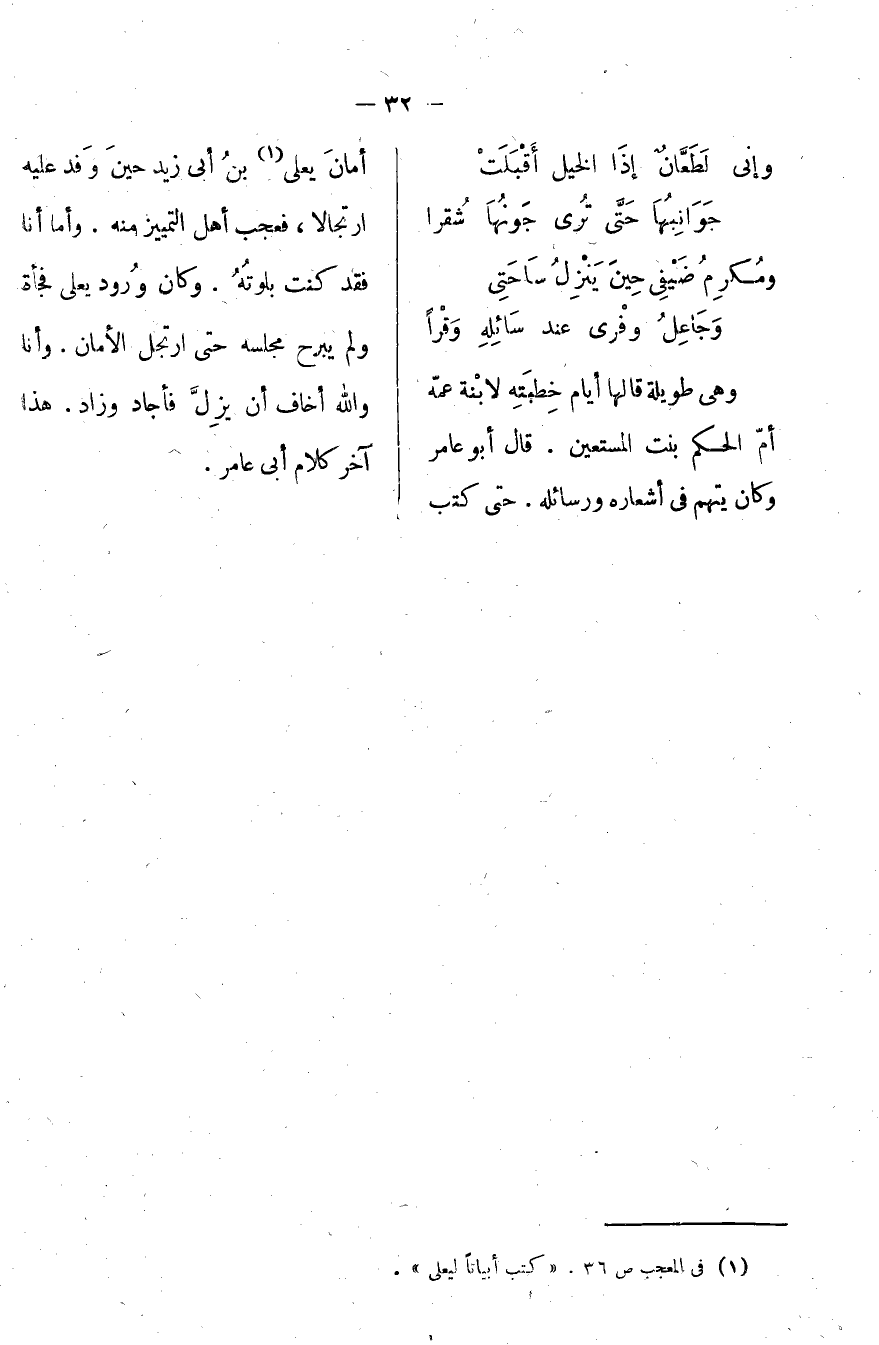 — ٣٢ —
وإنى لَطَعَّانٌ إذَا الخيل أَقْبَلَتْ
جَوَانِبُهَا حَتَّى تُرى جَونُهَا شُقرا
ومُكرِمُ ضَيْفِى حِينَ يَنْزِلُ سَاحَتِى
وَجَاعِلُ وفْرى عند سَائِلِهِ وَقْراً
وهى طويلة قالها أيام خِطبَتِه لابْنة عمّه
أمّ الحكم بنت المستعين . قال أبو عامر
وكان يتهم فى أشعاره ورسائله . حتى كتب
أمانَ يعلى(١) بنُ أبى زيد حينَ وَفد عليه
ارتجالا ، فعجب أهل التمييز منه . وأما أنا
فقد كنت بلوتُهُ . وكان وُرود يعلى فجأة
ولم يبرح مجلسه حتى ارتجل الأمان . وأنا
والله أخاف أن يزِلَّ فأجاد وزاد . هذا
آخر كلام أبى عامر .
(١) فى المعجب ص ٣٦ . « كتب أبياتاً ليعلى » .